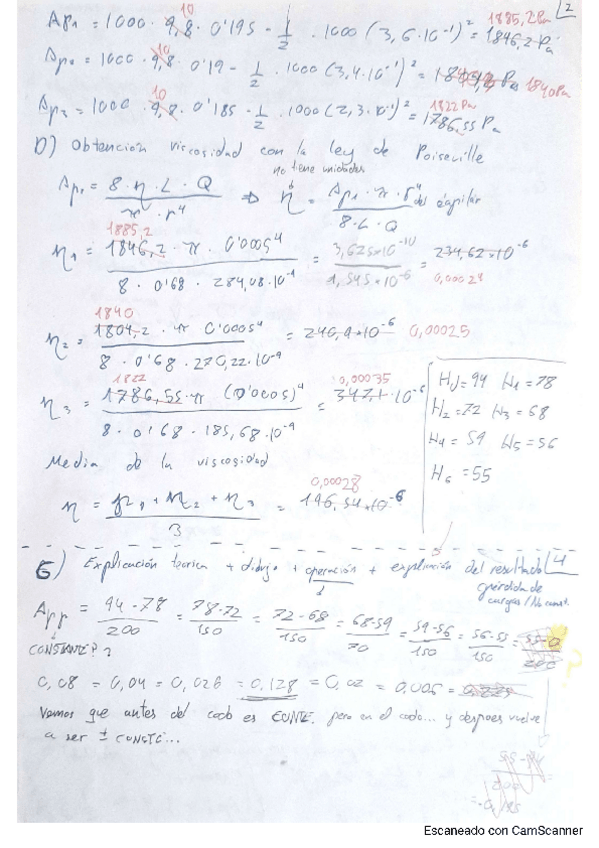 2
Δp₁ = 1000 · 9,8 · 0'195 - 1/2 · 1000 (3,6·10⁻¹)² = 1846,2 Pa 1885,2 Pa
10
Δp₂ = 1000 · 9,8 · 0'19 - 1/2 · 1000 (3,4·10⁻¹)² = Pa 1840 Pa
10
Δp₃ = 1000 · 9,8 · 0'185 - 1/2 · 1000 (2,3·10⁻¹)² = 1786,55 Pa 1822 Pa
10
D) Obtención viscosidad con la ley de Poiseville
no tiene unidades
Δp₁ = 8·η·L·Q / π·r⁴ ⇒ η = Δp₁·π·r⁴ del capilar / 8·L·Q
1885,2
η₁ = 1846,2 · π · 0'0005⁴ / 8 · 0'68 · 284,08·10⁻⁹ = 3,625x10⁻¹⁰ / 1,545x10⁻⁶ = 234,62x10⁻⁶
1840
η₂ = 1804,2 · π 0'0005⁴ / 8 · 0'68 · 270,22·10⁻⁹ = 240,4x10⁻⁶ 0,00025
1822 0,00035
η₃ = 1786,55·π (0'0005)⁴ / 8 · 0'68 · 185,68·10⁻⁹ = 347,1·10⁻⁶
H₁ = 78
H₂ = 72 H₃ = 68
H₄ = 59 H₅ = 56
H₆ = 55
Media de la viscosidad
0,00028
η = η₁ + η₂ + η₃ / 3 =
4
E) Explicación teorica + dibujo + operación + explicación del resultado
pérdida de cargas / No const.
= 94-78 / 200 = 78-72 / 150 = 72-68 / 150 = 68-59 / 70 = 59-56 / 150 = 56-55 / 150 =
CONSTANTE?
0,08 = 0,04 = 0,026 = 0,128 = 0,02 = 0,006 =
Vemos que antes del codo es CONTE. pero en el codo... y despues vuelve
a ser ± CONSTE...
Escaneado con CamScanner